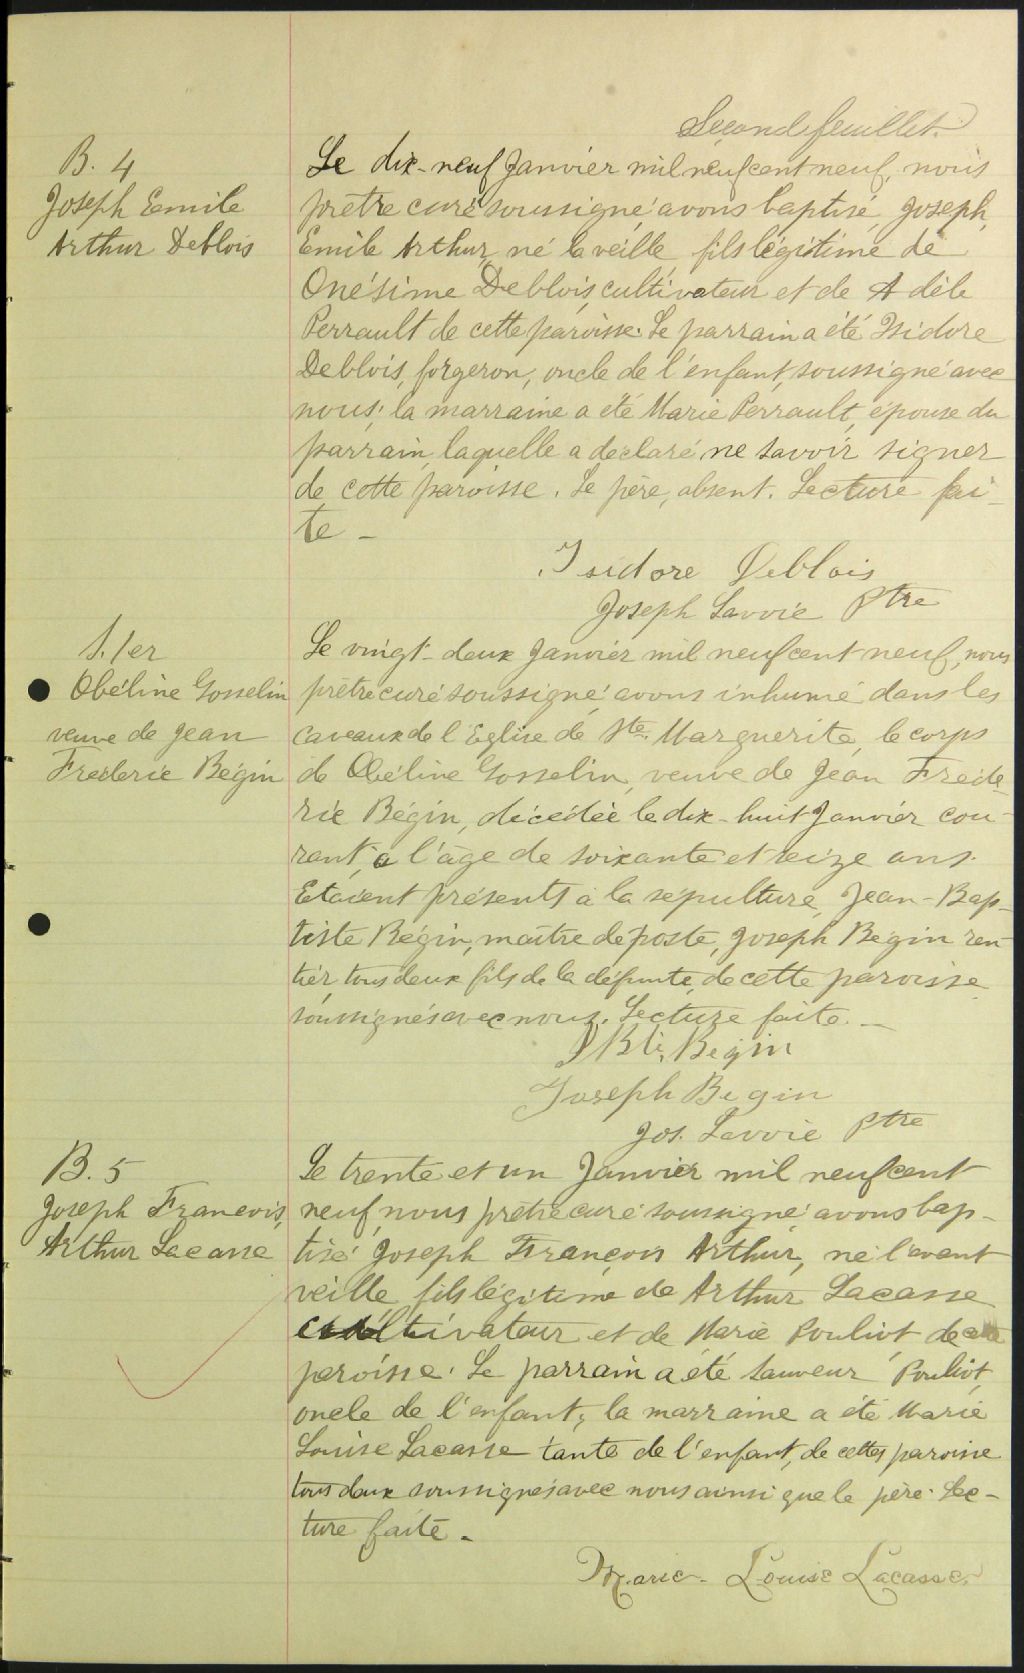 Second feuillet.
B. 4
Joseph Eemile
Arthur Deblois
Le dix-neuf Janvier mil neuf cent neuf, nous
prêtre curé soussigné avons baptisé Joseph,
Emile Arthur, né la veille, fils légitime de
Onésime Deblois, cultivateur et de Adèle
Perrault de cette paroisse. Le parrain a été Isidore
Deblois, forgeron, oncle de l'enfant, soussigné avec
nous; la marraine a été Marie Perrault, épouse du
parrain, laquelle a déclaré ne savoir signer
de cette paroisse. Le père, absent. Lecture fai-
te -
Isidore Deblois
Joseph Lavoie Ptre
S. 1er
Obéline Gosselin
veuve de Jean
Fréderic Bégin
Le vingt-deux Janvier mil neuf cent neuf, nous
prêtre curé soussigné avons inhumé dans les
caveaux de l'Eglise de Ste Marguerite, le corps
de Obéline Gosselin, veuve de Jean Fréde-
ric Bégin, décédée le dix-huit Janvier cou-
rant, à l'âge de soixante et seize ans.
Etaient présents à la sépulture, Jean-Bap-
tiste Bégin, maître de poste, Joseph Bégin ren-
tier, tous deux fils de la défunte, de cette paroisse
soussignés avec nous. Lecture faite. -
J Bte. Begin
Joseph Begin
Jos. Lavoie Ptre
B. 5
Joseph Francois,
Arthur Lacasse
Le trente et un Janvier mil neuf cent
neuf, nous prêtre curé soussigné avons bap-
tisé Joseph François Arthur, né l'avant
veille, fils légitime de Arthur Lacasse
cultivateur et de Marie Pouliot, de cette
paroisse. Le parrain a été Sauveur Pouliot,
oncle de l'enfant; la marraine a été Marie
Louise Lacasse tante de l'enfant, de cette paroisse
tous deux soussignés avec nous ainsi que le père. Lec-
ture faite. -
Marie-Louise Lacasse.